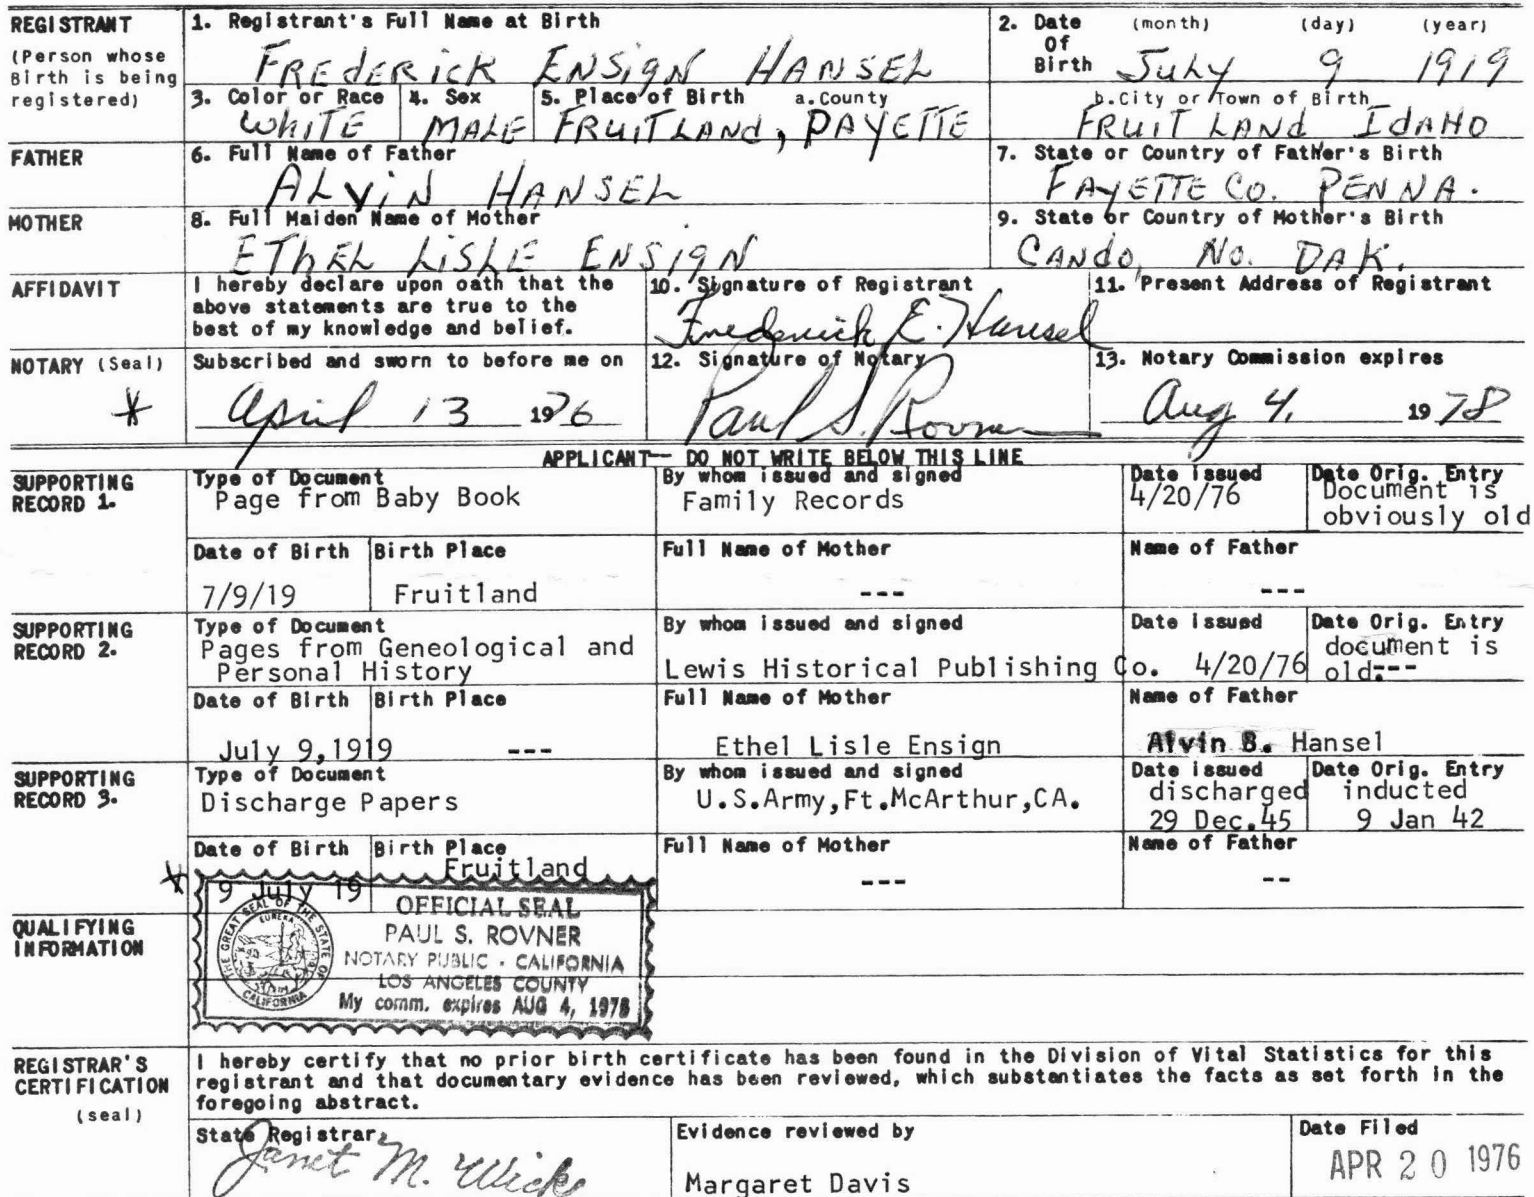 REGISTRANT
(Person whose
Birth is being
registered)
1. Registrant's Full Name at Birth
FREdERiCK ENSigN HANSEL
2. Date Of Birth (month) (day) (year)
JuLy 9 1919
3. Color or Race
WHiTE
4. Sex
MALE
5. Place of Birth a. County
FRUiTLANd, PAYETTE
b. City or Town of Birth
FRUiT LANd IdAHO
FATHER
6. Full Name of Father
ALViN HANSEL
7. State or Country of Father's Birth
FAYETTE Co. PENNA.
MOTHER
8. Full Maiden Name of Mother
EThEL LiSLE ENSigN
9. State or Country of Mother's Birth
CANdo, No. DAK.
AFFIDAVIT
I hereby declare upon oath that the
above statements are true to the
best of my knowledge and belief.
10. Signature of Registrant
Frederick E. Hansel
11. Present Address of Registrant
NOTARY (Seal)
*
Subscribed and sworn to before me on
April 13 1976
12. Signature of Notary
Paul S. Rovner
13. Notary Commission expires
Aug 4, 1978
APPLICANT— DO NOT WRITE BELOW THIS LINE
SUPPORTING
RECORD 1.
Type of Document
Page from Baby Book
By whom issued and signed
Family Records
Date issued
4/20/76
Date Orig. Entry
Document is
obviously old
Date of Birth
7/9/19
Birth Place
Fruitland
Full Name of Mother
---
Name of Father
---
SUPPORTING
RECORD 2.
Type of Document
Pages from Geneological and
Personal History
By whom issued and signed
Lewis Historical Publishing Co.
Date issued
4/20/76
Date Orig. Entry
document is
old.---
Date of Birth
July 9,1919
Birth Place
---
Full Name of Mother
Ethel Lisle Ensign
Name of Father
Alvin B. Hansel
SUPPORTING
RECORD 3.
Type of Document
Discharge Papers
By whom issued and signed
U.S.Army,Ft.McArthur,CA.
Date issued
discharged
29 Dec.45
Date Orig. Entry
inducted
9 Jan 42
Date of Birth
* 9 July 19
Birth Place
Fruitland
Full Name of Mother
---
Name of Father
--
QUALIFYING
INFORMATION
THE GREAT SEAL OF THE STATE OF CALIFORNIA
EUREKA
OFFICIAL SEAL
PAUL S. ROVNER
NOTARY PUBLIC - CALIFORNIA
LOS ANGELES COUNTY
My comm. expires AUG 4, 1978
REGISTRAR'S
CERTIFICATION
(seal)
I hereby certify that no prior birth certificate has been found in the Division of Vital Statistics for this
registrant and that documentary evidence has been reviewed, which substantiates the facts as set forth in the
foregoing abstract.
State Registrar
Janet M. Wick
Evidence reviewed by
Margaret Davis
Date Filed
APR 20 1976